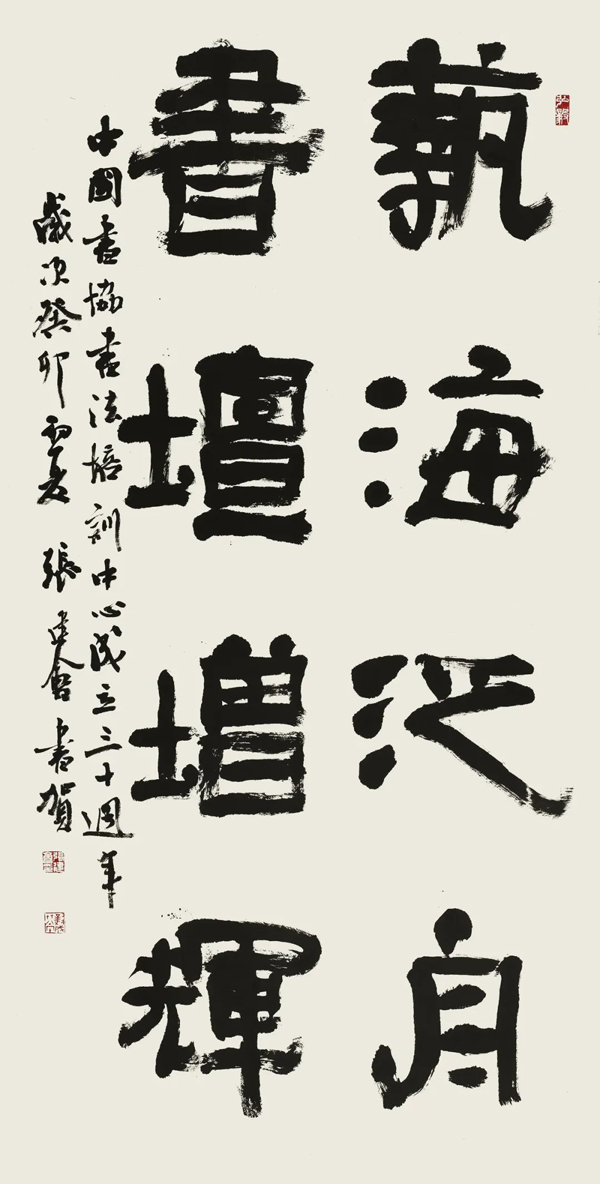 藝海泛舟
書壇增輝
中國書協書法培訓中心成立三十週年
歲次癸卯初夏 張建會書賀